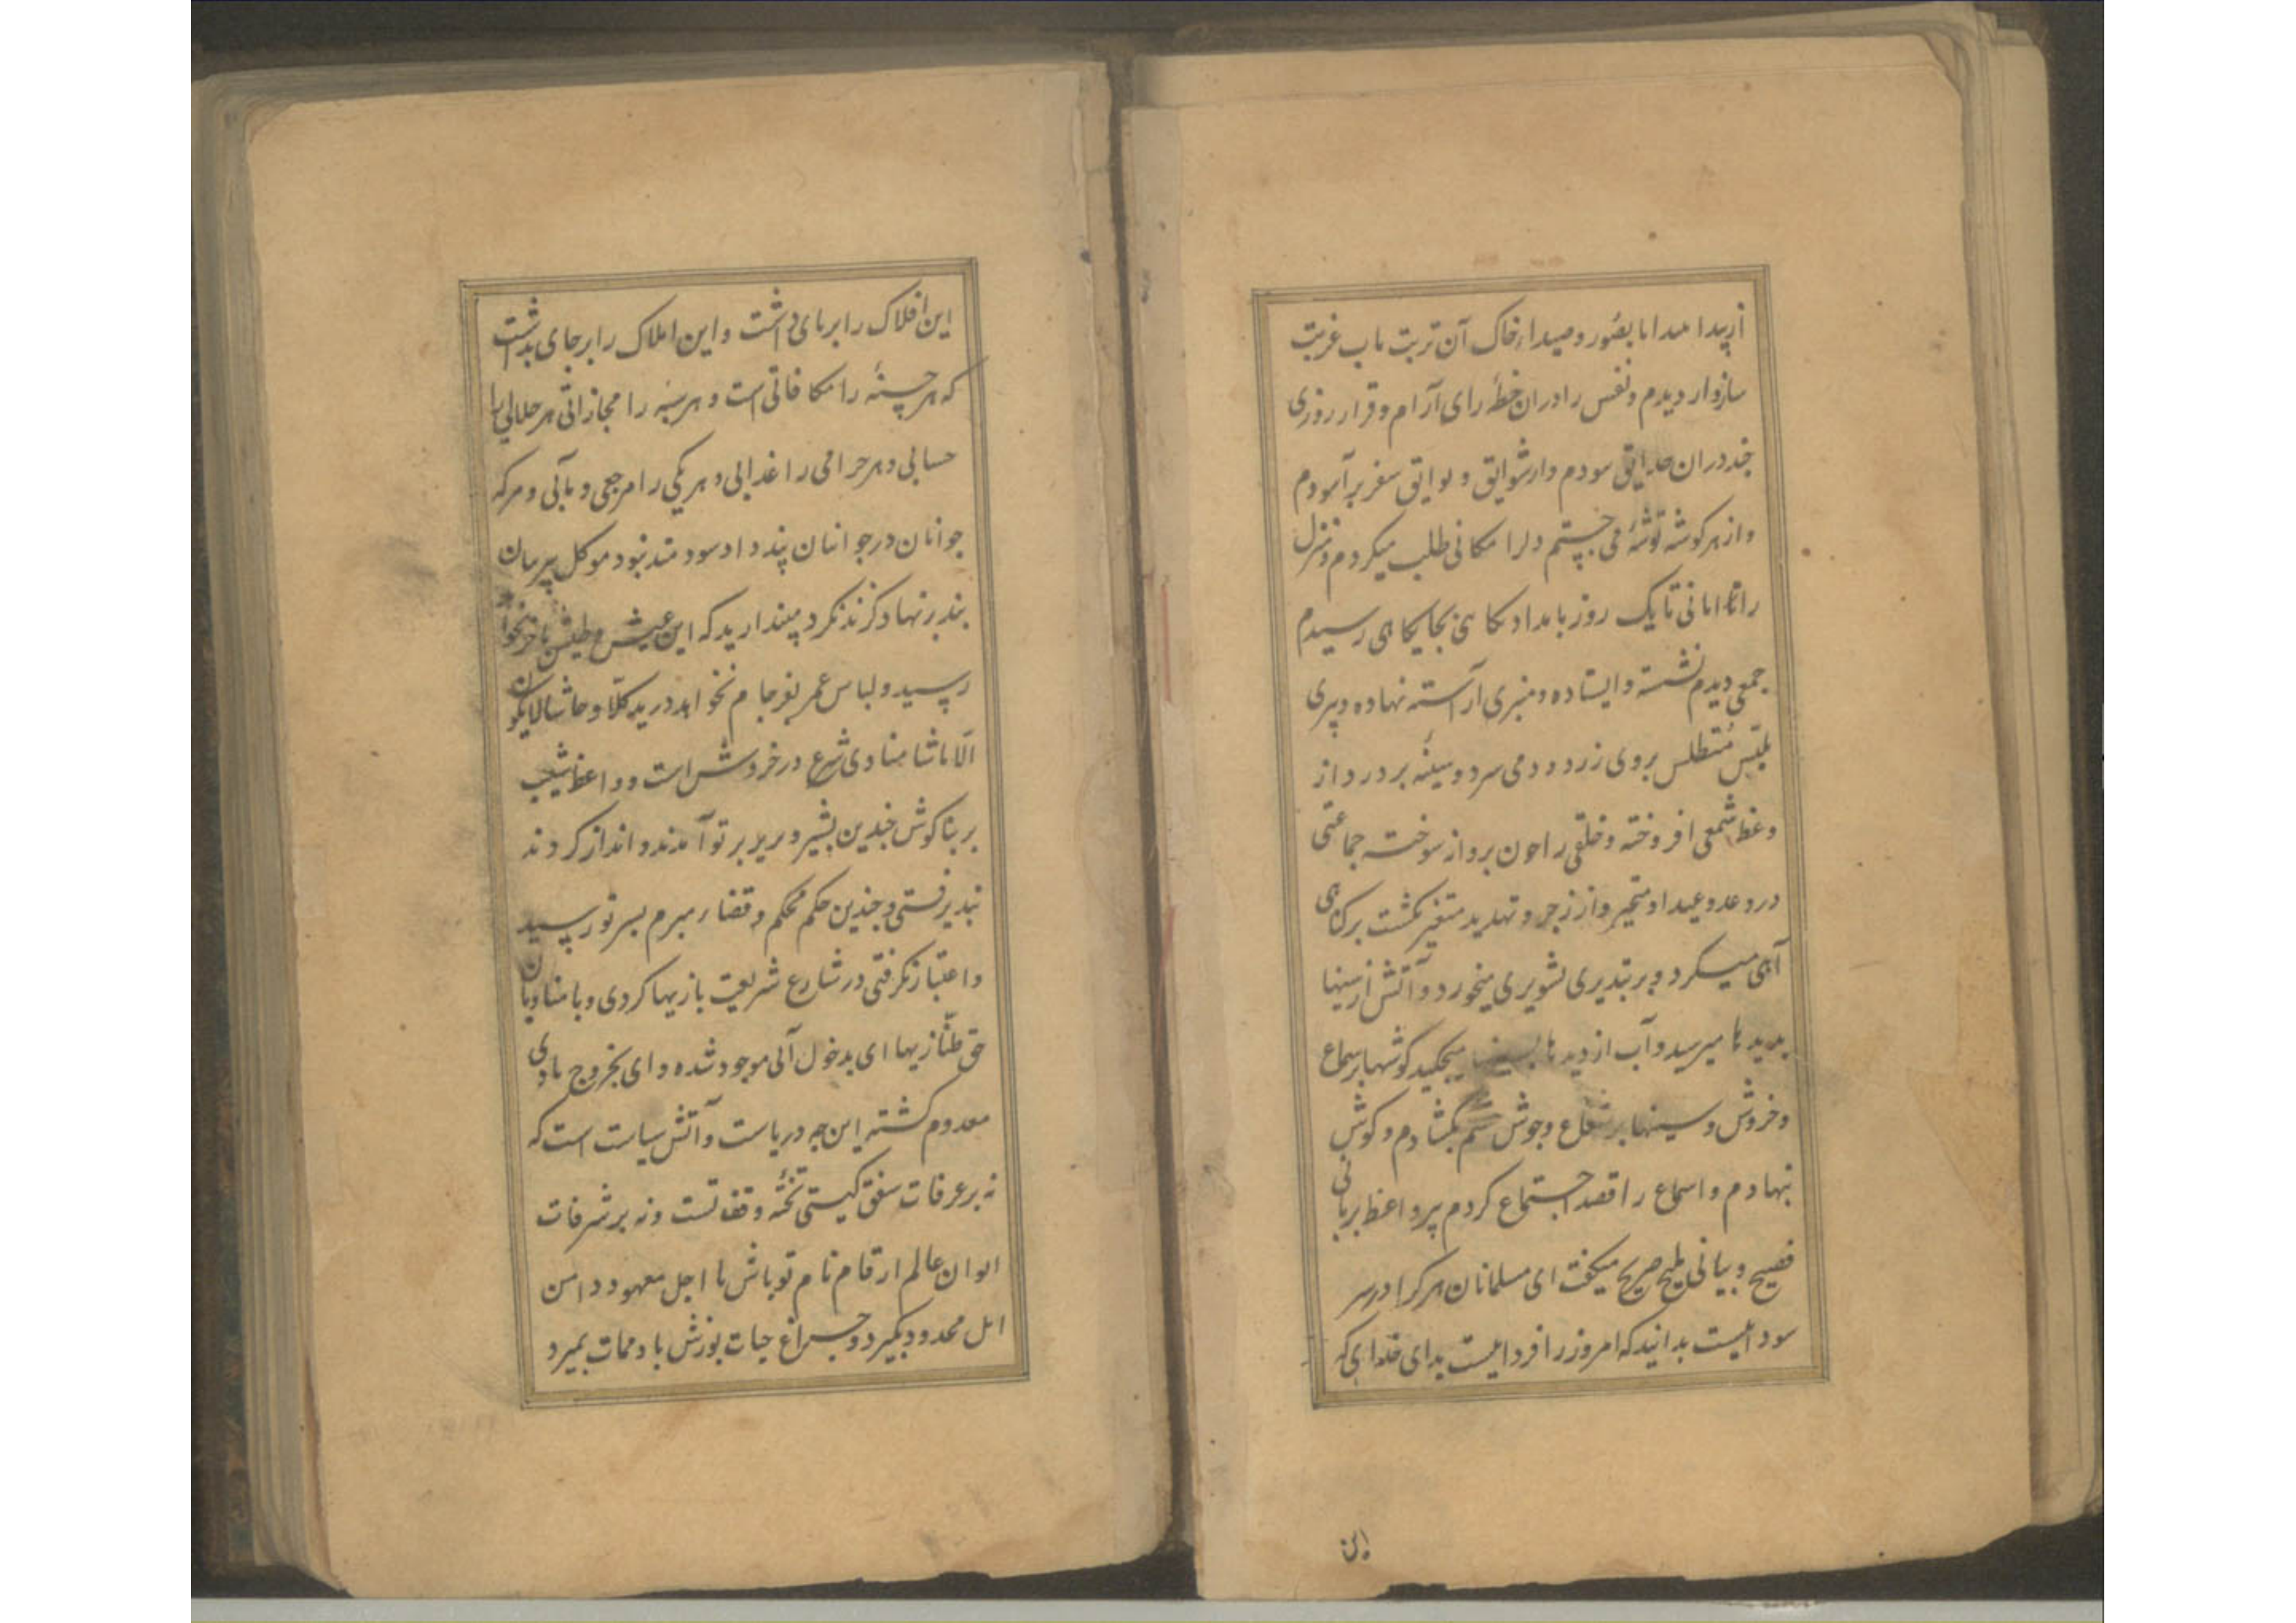 سازوار دیدم و نفس را دران خطه رای آرام و قرار روزی
چند دران حدایق سودم و از شوایق و بوایق سفر بر آسودم
و از هر کوشه توشهٔ می جستم دلرا مکانی طلب میکردم و منزل
را امانی تا یک روز بامداد بکاهی بجایکاهی رسیدم
جمعی دیدم نشسته و ایستاده و منبری آراسته نهاده و پیری
متطلس بروی زرد و دمی سرد و سینهٔ بر درد از
وعظ شمعی افروخته و خلقی را چون پروانه سوخته جماعتی
در وعد و وعید او متحیر و از زجر و تهدید متغیر کشت بر کناهی
آهی میکرد و بر تبذیری تشویری میخورد و آتش از سینها
بدیدها میرسید و آب از دیدها میچکید کوشها بر سماع
و خروش و سینها بر شعاع و جوش بکشادم و کوش
نهادم و اسماع را قصد اجتماع کردم پیر واعظ بزبانی
فصیح و بیانی ملیح صریح میکفت ای مسلمانان هر کرا در سر
سوداییست بدانید که امروز را فرداییست بدای خدای که
این
این افلاک را برپای داشت و این املاک را برجای بداشت
که هر حسنهٔ را مکافاتی است و هر سیئه را مجازاتی هر حلالی را
حسابی و هر حرامی را عذابی و هر یکی را مرجعی و مآلی و هر که
جوانان در جوانان پند داد سودمند نبود موکل پیر مان
بند بر نهاد کزند نکرد مپندارید که این عیش و طیش بآخر نخواهد
رسید و لباس عمر بفرجام نخواهد درید کلا و حاشا لایکون
الا ماشا منادی شرع در خروش است و واعظ شیب
بر بناکوش چندین بشیر و نذیر بر تو آمدند و انذار کردند
نپذیرفتی و چندین حکم محکم و قضاء مبرم بسر تو رسید
و اعتبار نکرفتی در شارع شریعت بازیها کردی و با منادیان
حق طنازیها ای بدخول آلی موجود شده و ای بخروج بادی
معدوم کشته این چه دریاست و آتش سیاست است که
نه بر غرفات سقف کیتی تخته وقف تست و نه بر شرفات
ایوان عالم ارقام نام تو باش تا اجل معهود دامن
امل محدود بکیرد و چراغ حیات بوزش باد ممات بمیرد